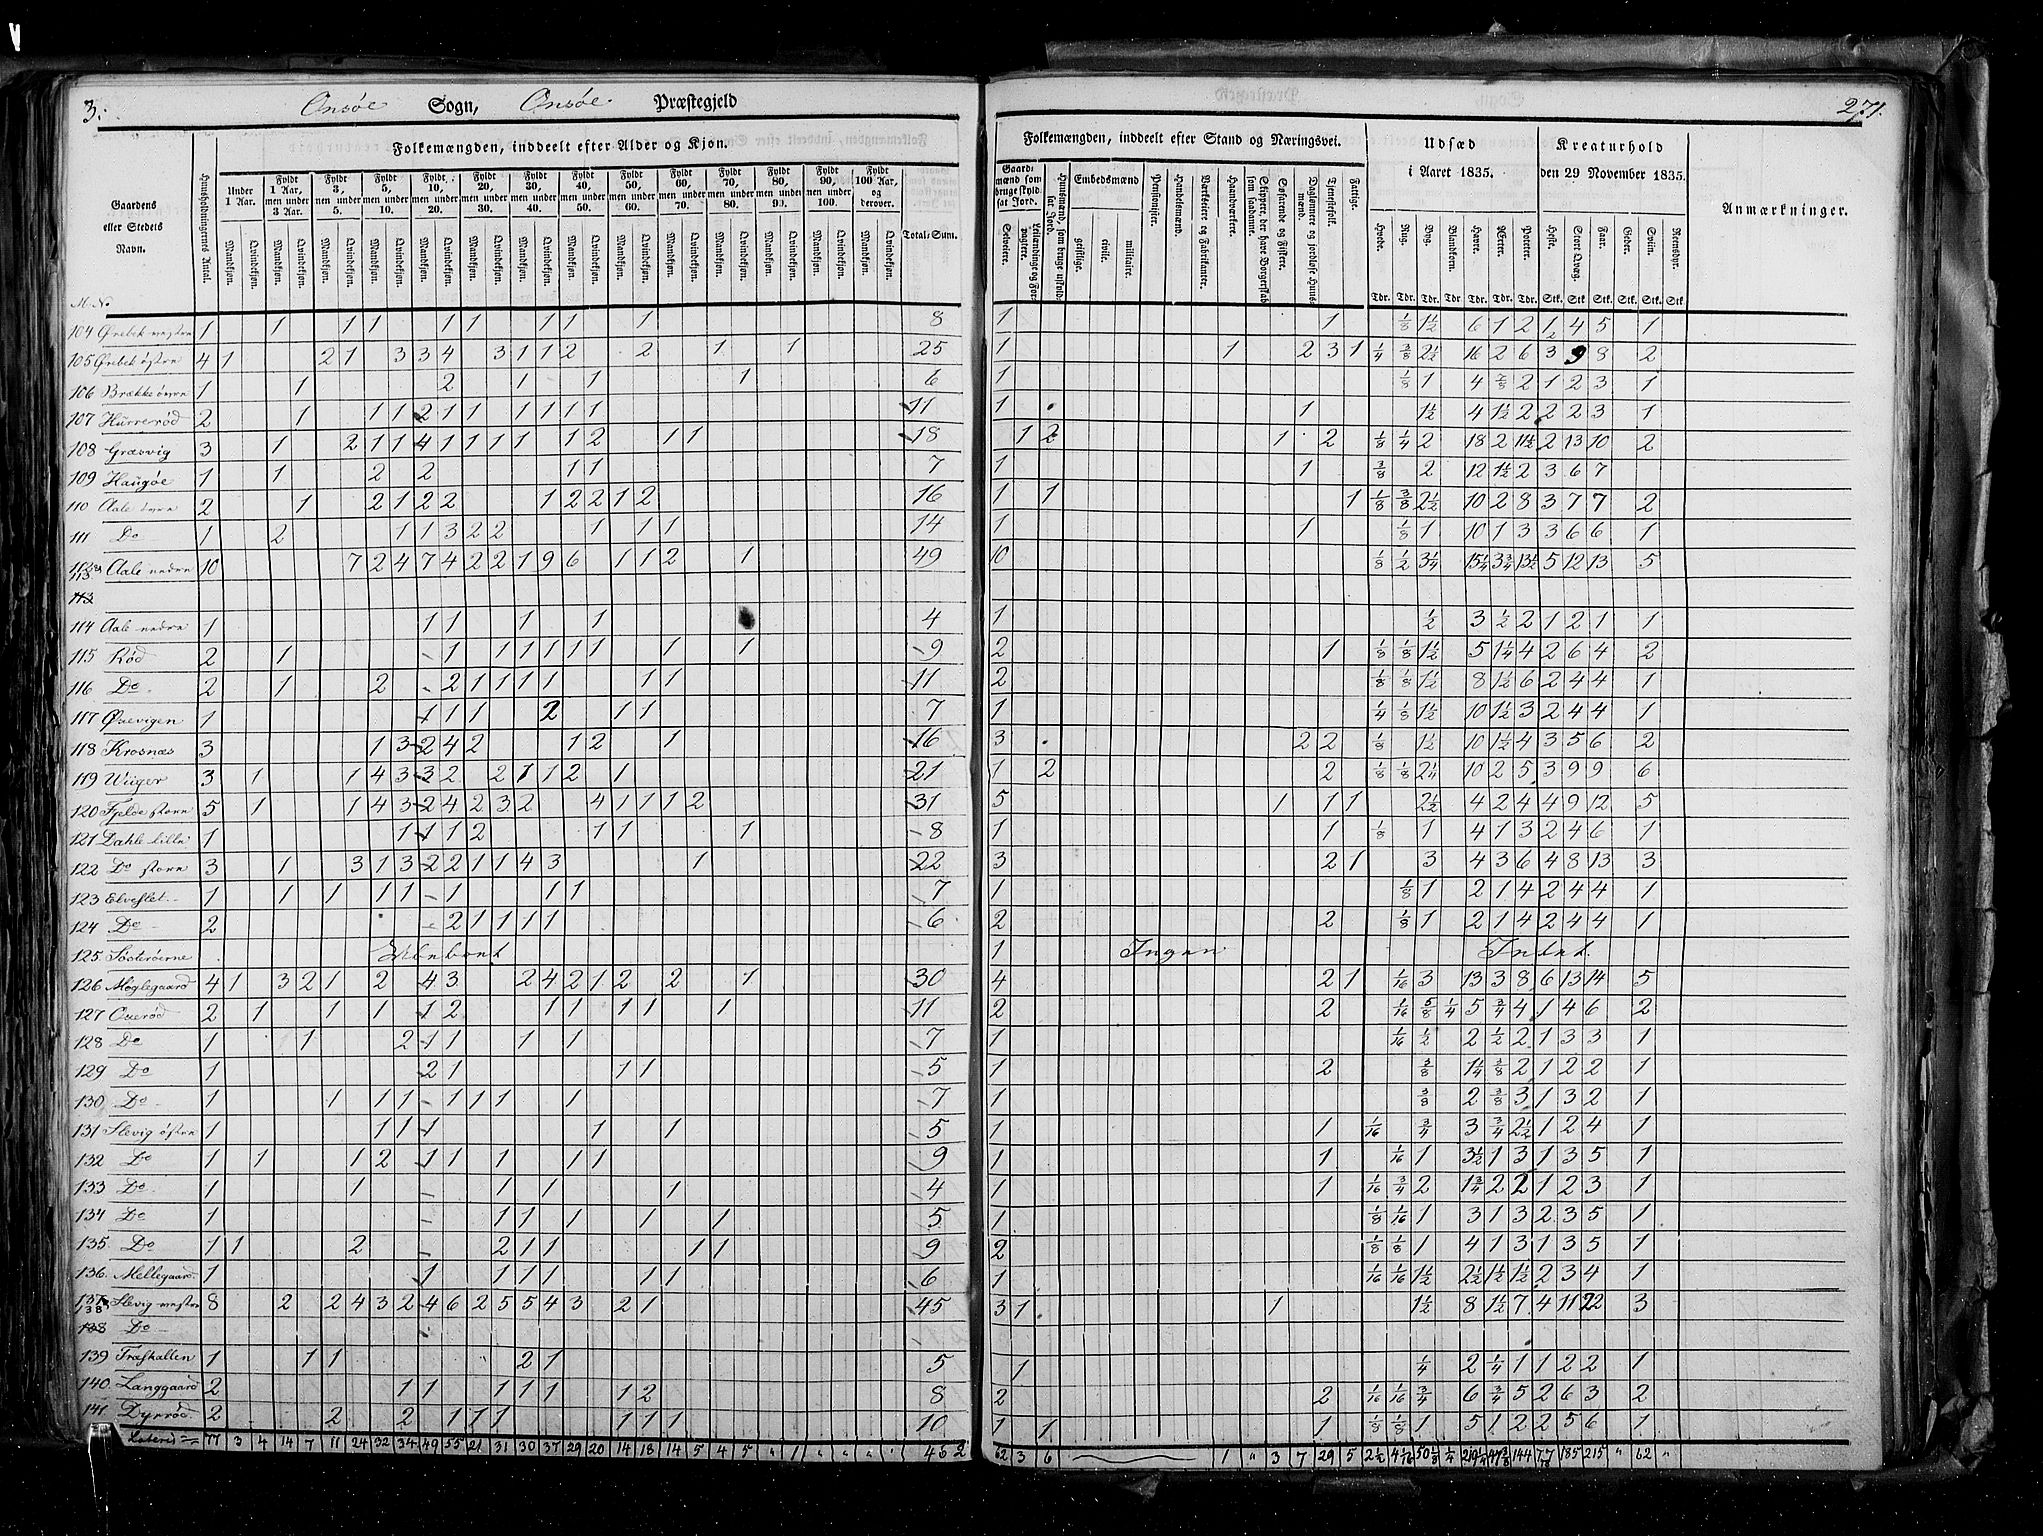 3. Onsøe Sogn, Onsøe Præstegjeld
271.
Folkemængden, inddeelt efter Alder og Kjøn.
Folkemængden, inddeelt efter Stand og Næringsvei.
Udsæd i Aaret 1835.
Kreaturhold den 29 November 1835.
Anmærkninger.
Gaardens eller Stedets Navn.
Huusholdningernes Antal.
Under 1 Aar.
Fyldt 1 Aar, men under 3 Aar.
Fyldt 3, men under 5.
Fyldt 5, men under 10.
Fyldt 10, men under 20.
Fyldt 20, men under 30.
Fyldt 30, men under 40.
Fyldt 40, men under 50.
Fyldt 50, men under 60.
Fyldt 60, men under 70.
Fyldt 70, men under 80.
Fyldt 80, men under 90.
Fyldt 90, men under 100.
Fyldt 100 Aar, og derover.
Total-Sum.
Mandkjøn. Qvindekjøn.
Gaardmænd som bruge skyldsat Jord.
Selveiere.
Leilændinge og Forpagtere.
Huusmænd, som bruge skyldsat Jord.
Embedsmænd
geistlige. civile. militaire.
Pensionister.
Handelsmænd.
Værkseiere og Fabrikanter.
Haandværkere.
Skippere, der have Borgerskab som saadanne.
Søfarende og Fiskere.
Dagslønnere og jordløse Huusmænd.
Tjenestefolk.
Fattige.
Hvede. Rug. Byg. Blandkorn. Havre. Ærter. Poteter. Heste. Stort Qvæg. Faar. Geder. Sviin. Reensdyr.
Tdr. Tdr. Tdr. Tdr Tdr. Tdr. Tdr. Stk. Stk Stk. Stk. Stk. Stk
M. No.
104 Ørebek vestre 1 1 1 1 1 1 1 1 1 8 1 1 1/8 1 1/2 6 1 2 1 4 5 1
105 Ørebek østre 4 1 2 1 3 3 4 3 1 1 2 2 1 1 25 1 1 2 3 1 1/4 3/8 2 1/2 16 2 6 3 9 8 2
106 Brække øvre 1 1 2 1 1 1 6 1 1/8 1 4 7/8 2 1 2 3 1
107 Hurrerød 2 1 1 1 2 1 1 1 1 1 1 11 1 1 1 1/2 4 1 1/2 2 2 2 3 1
108 Græsvig 3 1 2 1 1 4 1 1 1 1 1 2 1 1 18 1 2 1 2 1/8 1/4 2 18 2 11 1/2 2 13 10 2
109 Haugøe 1 1 2 2 1 1 7 1 1 3/8 2 12 1 1/2 2 3 6 7
110 Aale øvre 2 1 2 1 2 2 1 2 2 1 2 16 1 1 1 1/8 3/8 2 1/2 10 2 8 3 7 7 2
111 Do 1 2 1 1 3 2 2 1 1 1 14 1 1 1/8 1 10 1 3 3 6 6 1
112 & 113 Aale nedre 10 7 2 4 7 4 2 2 1 9 6 1 1 2 1 49 10 1/8 1/2 3 1/4 15 1/4 3 3/4 13 1/2 5 12 13 5
113
114 Aale nedre 1 1 1 1 1 4 1 1/2 3 1/2 2 1 2 1 1
115 Rød 2 1 1 1 1 1 1 1 1 1 9 2 1 1/8 1/8 1 1/2 5 1 1/4 4 2 6 4 2
116 Do 2 1 2 2 1 1 1 1 1 1 11 2 1/8 1/8 1 1/2 8 1 1/2 6 2 4 4 1
117 Øxevigen 1 1 1 1 2 1 1 7 1 1/4 1/8 1 1/2 10 1 1/2 3 2 4 4 1
118 Krosnæs 3 1 3 2 4 2 1 2 1 16 3 2 2 1/8 1 1/2 10 1 1/2 4 3 5 6 2
119 Wiiger 3 1 1 4 3 3 2 2 1 1 2 1 21 1 2 2 1/8 1/8 2 1/4 10 2 5 3 9 9 6
120 Fjelde store 5 1 1 4 3 2 4 2 3 2 4 1 1 1 2 31 5 1 1 1 2 1/2 4 2 4 4 9 12 5
121 Dahle lille 1 1 1 1 2 1 1 1 8 1 1 1/8 1 4 1 3 2 4 6 1
122 Do store 3 1 3 1 3 2 2 1 1 4 3 1 22 3 2 1 3 4 3 6 4 8 13 3
123 Elveflet 1 1 1 1 1 1 1 1 7 1 1/8 1 2 1 4 2 4 4 1
124 Do 2 2 1 1 1 1 6 2 2 1/8 1 2 1 4 2 4 4 1
125 Søsterøerne Ubeboet 1 Ingen Intet
126 Møglegaard 4 1 3 2 1 2 4 3 2 4 2 1 2 2 1 30 4 2 1 1/16 3 13 3 8 6 13 14 5
127 Oxerød 2 1 1 1 1 2 1 1 1 1 1 11 2 2 1/16 5/8 1/4 5 3/4 4 1 4 6 2
128 Do 1 1 2 1 1 1 1 7 1 1/16 1/2 2 1/2 2 1 3 3 1
129 Do 1 2 1 1 1 5 1 2 3/8 1 1/4 3/8 2 1 2 2 1
130 Do 1 1 1 1 1 1 1 1 7 1 3/8 2 3/8 3 1 3 2 1
131 Slevig østre 1 1 1 1 1 1 5 1 1 1/16 3/4 3 3/4 2 1/2 1 2 4 1
132 Do 1 1 1 2 1 1 1 1 1 9 1 1 1/16 1 3 1/2 1 3 1 3 5 1
133 Do 1 1 1 1 1 4 1 1 1/16 3/4 2 1 3/4 2 2 1 2 3 1
134 Do 1 1 1 1 1 1 5 1 1/8 1/16 1 3 1 3 2 3 5 1
135 Do 1 1 2 2 1 1 1 1 9 2 1/8 1/8 1 4 1 3 1 3 5 1
136 Mellegaard 1 1 1 1 1 1 1 6 1 1/16 1/16 1 1/2 2 1/2 1 1/2 1 1/2 2 3 4 1
137 & 138 Slevig vestre 8 2 2 4 3 2 4 6 2 5 5 4 3 2 1 45 3 1 1 1 1/2 8 1 1/2 7 4 11 22 3
138 Do
139 Træskallen 1 1 1 2 1 5 1 1/4 2 1/4 1 1 2 2 1
140 Langgaard 2 1 1 1 1 1 1 2 8 2 2 1/16 1/16 3/4 6 3/4 5 2 6 3 2
141 Dyrrød 2 2 2 1 1 1 1 1 1 10 1 1 1 1/8 1/8 1 5 1 2 2 5 6 1
Lateris 77 3 4 14 7 11 24 32 34 49 55 21 31 30 37 29 20 14 18 14 5 4 5 " 1 " " " " 462 62 3 6 1 " 3 7 29 5 2 1/2 4 1/16 50 1/8 1/4 219 1/4 47 3/8 144 77 185 215 " 62 "